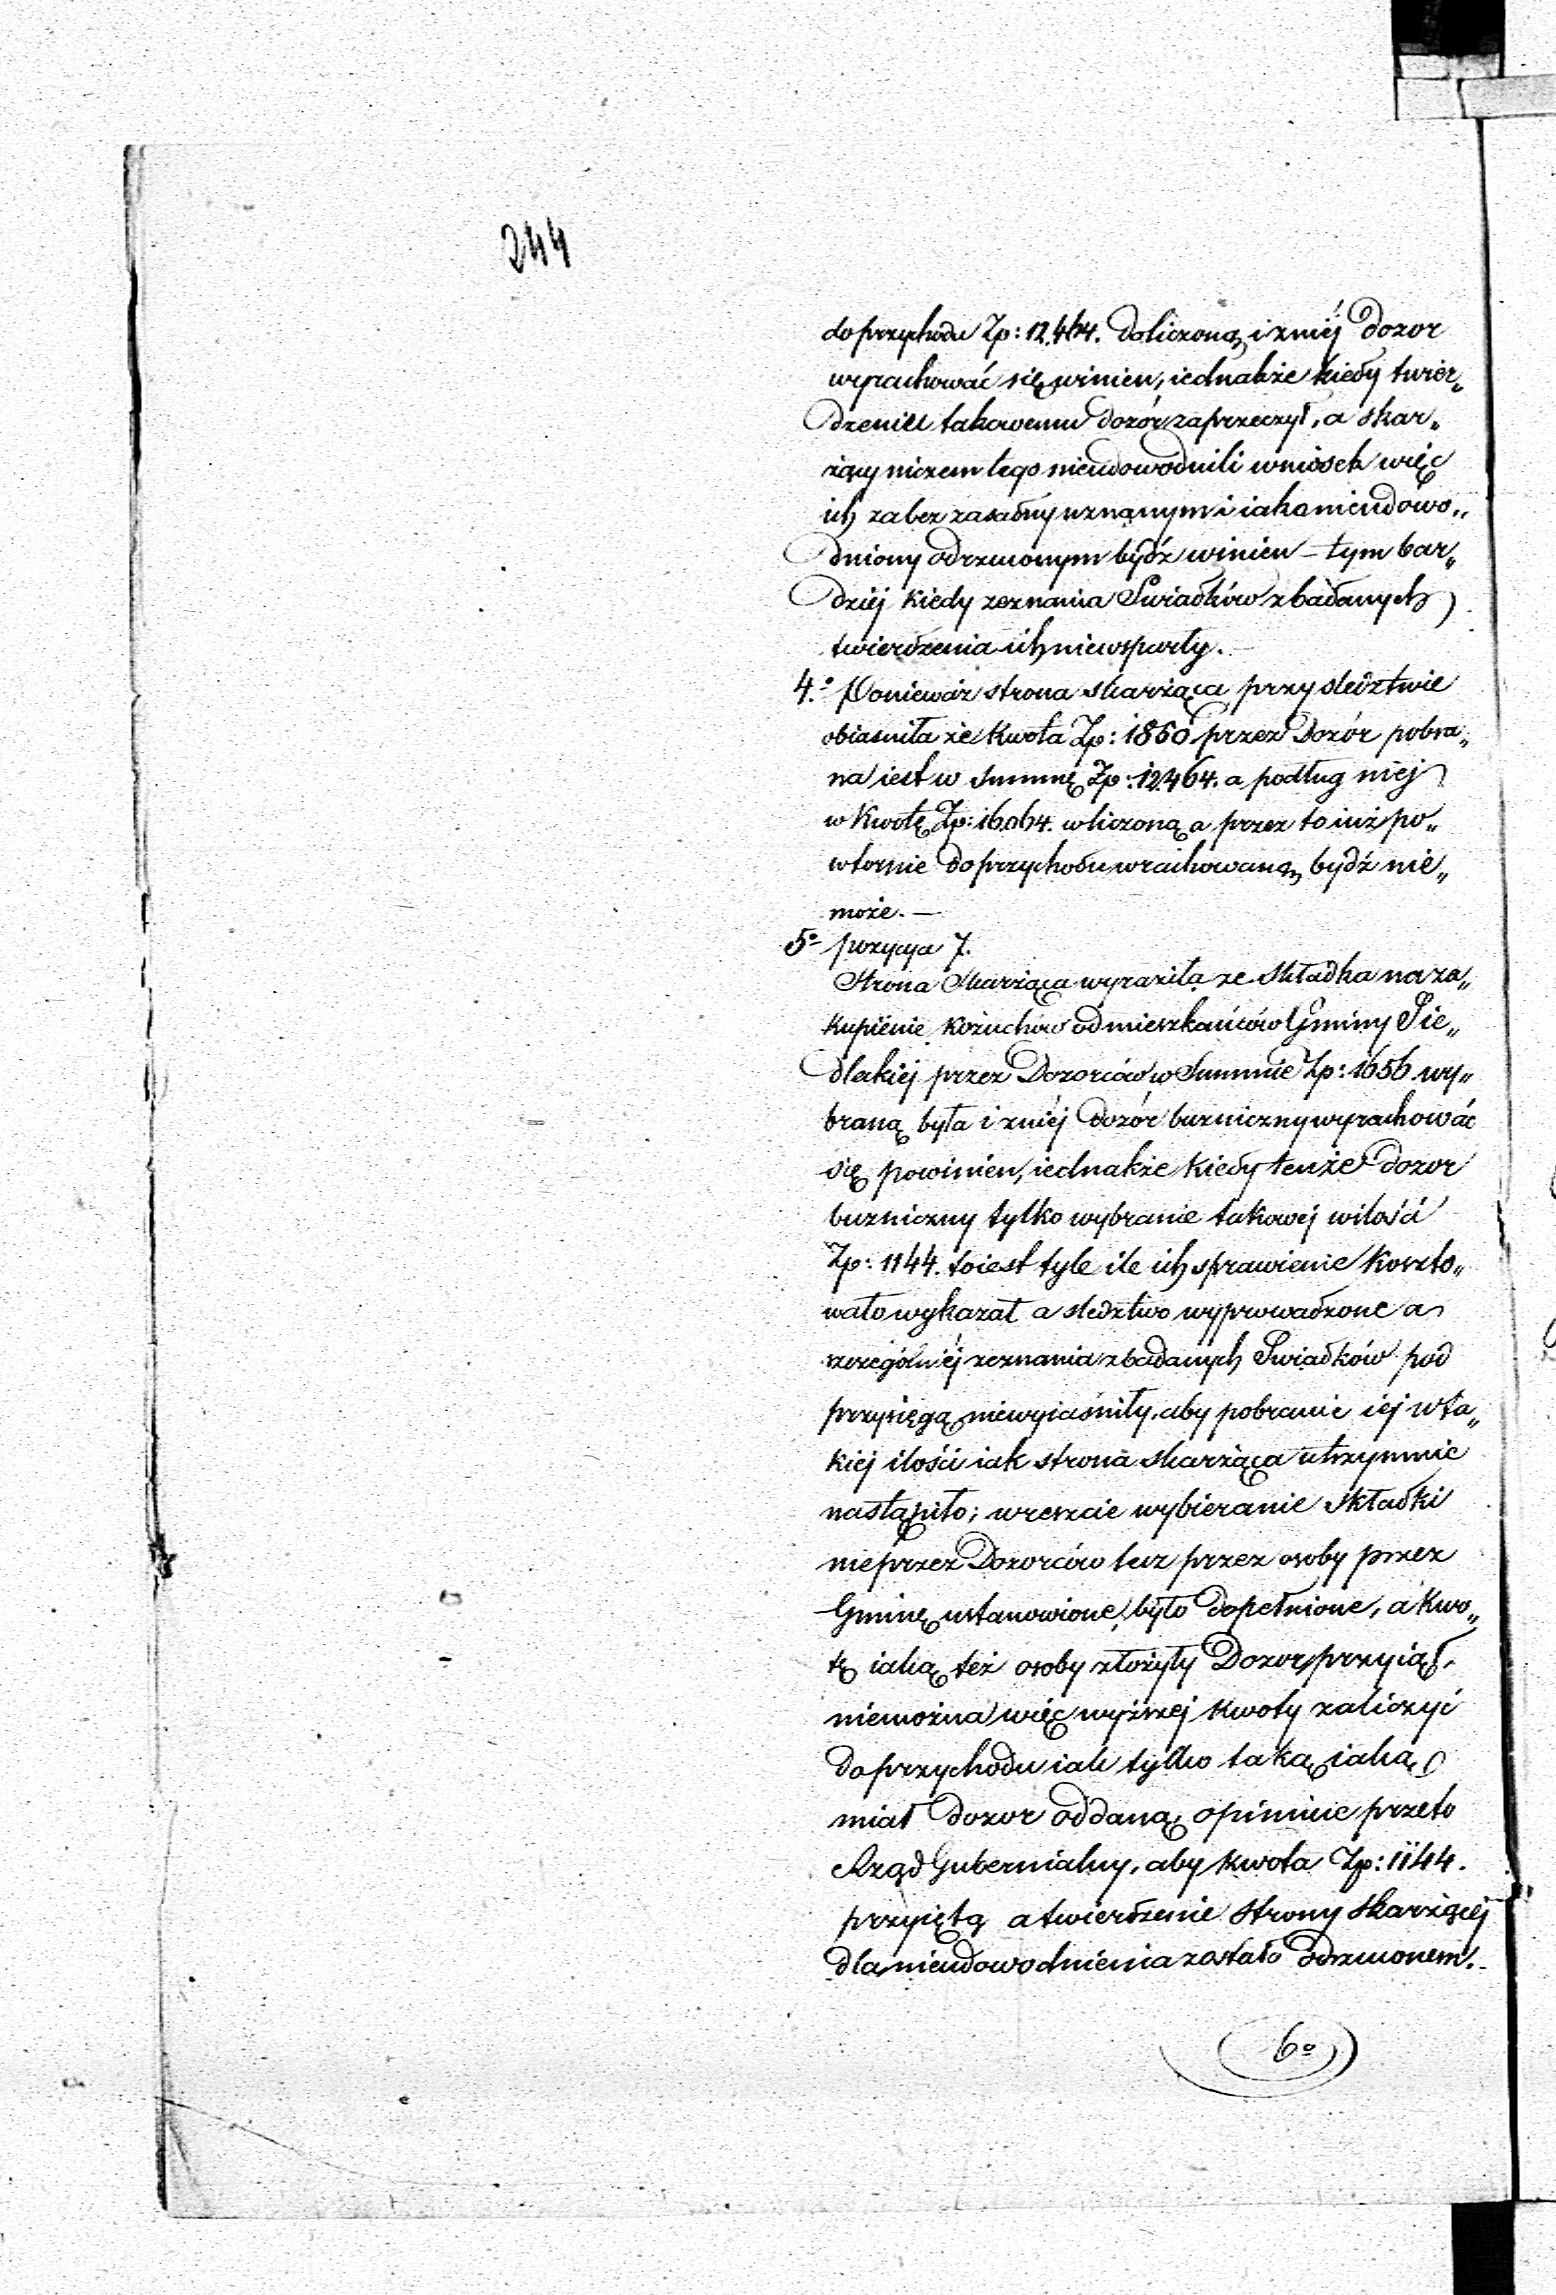 244
do przychodu Zp: 12,464. doliczoną i zniéj Dozor
wyrachować się winien, iednakże kiedy twier„
dzeniu takowemu Dozór zaprzeczył, a skar„
żący niczem tego nieudowodnili wniosek więc
ich za bezzasadny uznanym i iako nieudowo„
dniony odrzuconym bydź winien – tym bar„
dziej kiedy zeznania Swiadków zbadanych
twierdzenia ich niewsparły. –
4.° Ponieważ strona skarżąca przy sledztwie
obiasniła że Kwota Zp: 1860 przez Dozór pobra„
na iest w Summę Zp: 12,464. a podług niej
w Kwotę Zp: 16,064. wliczoną a przez to iuż po„
wtornie do przychodu wrachowaną bydź nie„
może. –
5° pozycya 7.
Strona Skarżąca wyraziła ze Składka na za„
kupienie Kożuchów od mieszkańców Gminy Sie„
dleckiej przez Dozorców w Summie Zp: 1656 wy„
braną była i zniéj Dozór bużniczny wyrachować
się powinien, iednakże Kiedy tenże Dozor
bużniczny tylko wybranie takowej wilości
Zp: 1144. toiest tyle ile ich sprawienie Koszto„
wało wykazał a sledztwo wyprowadzone a
szczególniéj zeznania zbadanych Swiadków pod
przysięgą niewyiaśniły, aby pobranie iej w ta„
kiej ilości iak strona skarżąca utrzymuie
nastąpiło; wreszcie wybieranie Składki
nie przez Dozorców lecz przez osoby przez
Gminę ustanowione, było dopełnione, a Kwo„
tę iaką też osoby złożyły Dozor przyiął,
niemożna więc wyższej Kwoty zaliczyć
do przychodu iak tylko taką iaką
miał Dozor oddaną, opiniuie przeto
Rząd Gubernialny, aby Kwota Zp: 1144.
przyiętą a twierdzenie Strony Skarżącej
dla nieudowodnienia zostało odrzuconem. –
6°